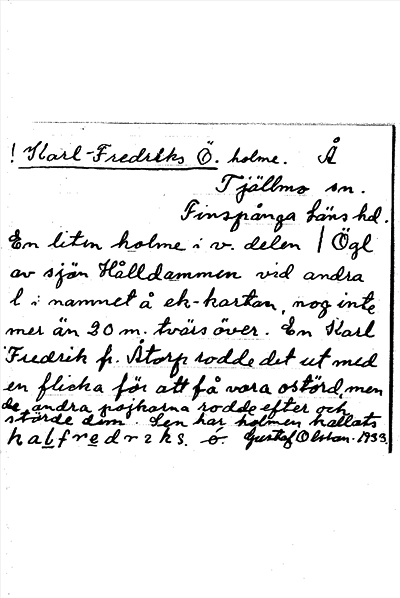 ! Karl-Fredriks Ö. holme. Å
Tjällmo sn.
Finspånga läns hd.
En liten holme i v. delen / Ögl
av sjön Hålldammen vid andra
l i namnet å ek-kartan, nog inte
mer än 30 m. tvärs över. En Karl
Fredrik fr. Åtorp rodde det ut med
en flicka för att få vara ostörd, men
de andra pojkarna rodde efter och
störde dem. Sen har holmen kallats
halfredriks. ö. Gustaf Olsson. 1933.